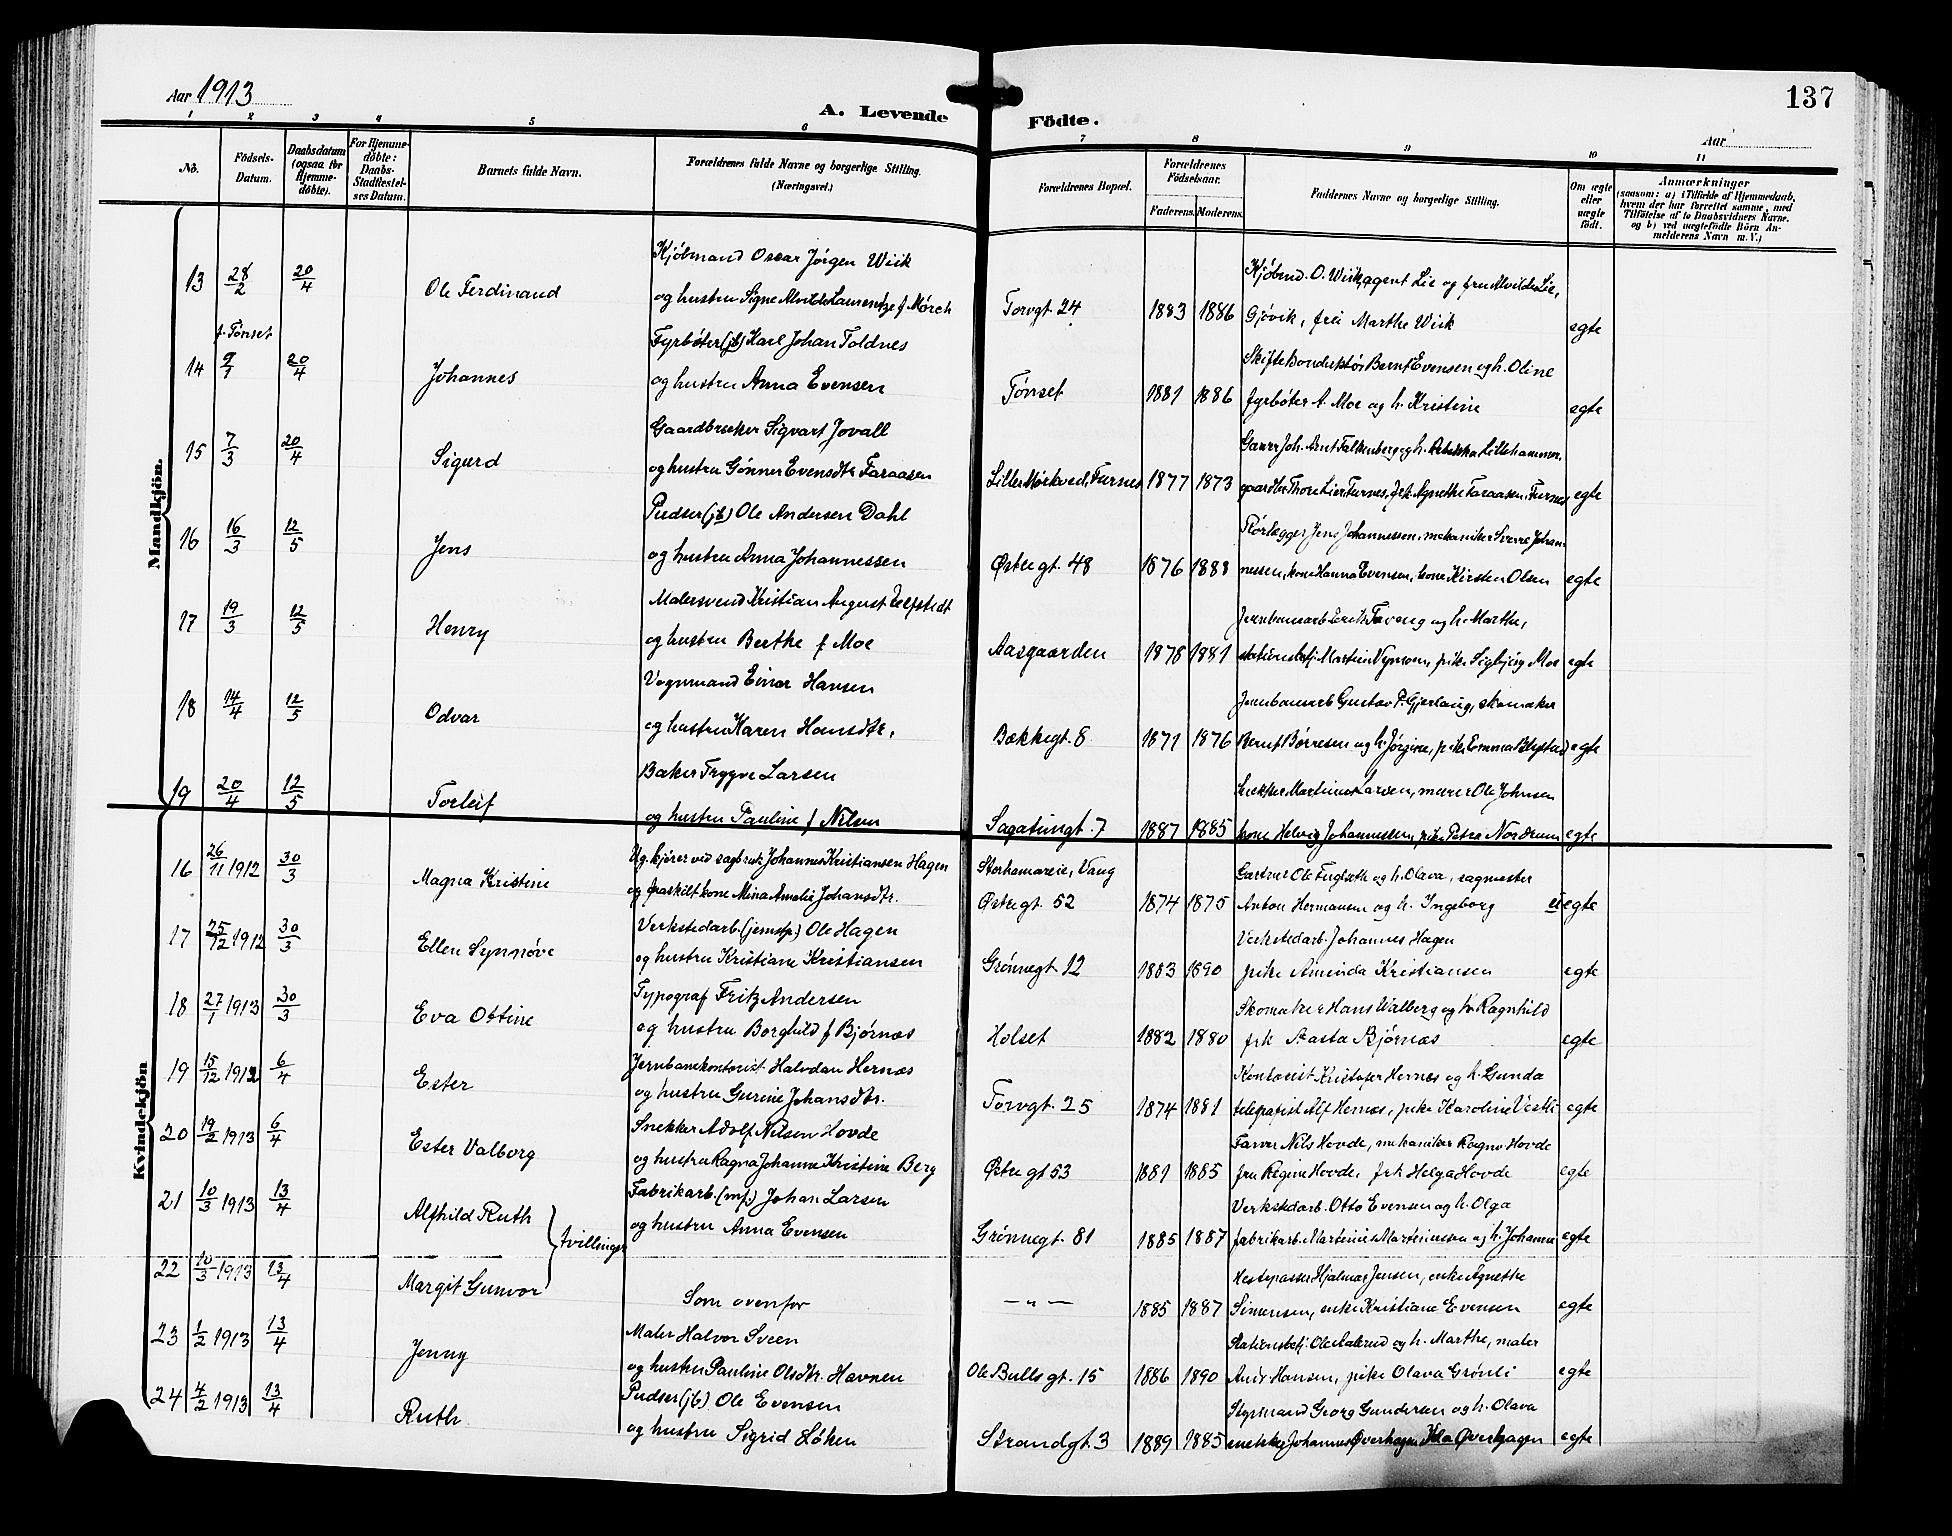 Aar 1913
A. Levende Födte.
137
Aar
1 2 3 4 5 6 7 8 9 10 11
No.
Födsels-Datum.
Daabsdatum (ogsaa for Hjemme-döbte).
For Hjemme-döbte: Daabs-Stadfæstel-ses Datum.
Barnets fulde Navn.
Forældrenes fulde Navne og borgerlige Stilling. (Næringsvei.)
Forældrenes Bopæl.
Forældrenes Födselsaar.
Faderens. Moderens.
Faddernes Navne og borgerlige Stilling.
Om ægte eller uægte födt.
Anmærkninger
(saasom: a) i Tilfælde af Hjemmedaab, hvem der har forrettet samme, med Tilföielse af to Daabsvidners Navne. og b) ved uægtefödte Börn An-melderens Navn m. V.)
Mandkjön.
13 28/2 20/4 Ole Ferdinand
Kjøbmand Oscar Jørgen Wiik
og hustru Signe Alvilde Laurentze f. Mørch
Torvgt 24 1883 1886
Kjøbmd. O. Wiik, agent Lie og fru Alvilde Lie,
Gjøvik, frk Marthe Wiik egte
f. Tønset
14 9/1 20/4 Johannes
Fyrbøter (jb) Karl Johan Toldnes
og hustru Anna Evensen
Tønset 1881 1886
Skiftekonduktør Bernt Evensen og h. Oline
fyrbøter A. Moe og h. Kristine egte
15 7/3 20/4 Sigurd
Gaardbruker Sigvart Jovall
og hustru Gønner Evensdtr Faraasen
Lille Mørkved, Furnes 1877 1873
Garver Joh. Arnt Falkenberg og h. Lillehammer.
gaardbr Thore Lier Furnes, frk Agnethe Faraasen, Furnes egte
16 16/3 12/5 Jens
Pudser (jb) Ole Andersen Dahl
og hustru Anna Johannessen
Østregt. 48 1876 1888
Rørlægger Jens Johannessen, mekaniker Sverre Johan-
nessen, kone Hanna Evensen, kone Kirsten Olsen egte
17 19/3 12/5 Henry
Malersvend Kristian August
og hustru Berthe f Moe
Aasgaarden 1878 1881
Jernbanearb Erik og h. Marthe,
stationsbetj. Martin, pike Sigbjørg Moe egte
18 14/4 12/5 Odvar
Vognmand Einar Hansen
og hustru Karen Hansdtr.
Bækkegt. 8 1871 1876
Jernbanearb Gustav P. Gjerlaug, skomaker
Bernt Børresen og h. Jørgine, pike Emma Blystad egte
19 20/4 12/5 Torleif
Baker Trygve Larsen
og hustru Pauline f Nilsen
Sagatungt. 7 1887 1885
Snekker Martinus Larsen, murer Ole Johnsen
kone Helvig Johannessen, pike Petra Nordrum egte
Kvindekjön
16 26/11 1912 30/3 Magna Kristine
Ug. kjører ved sagbruk Johannes Kristiansen Hagen
og fraskilt kone Mina Amalie Johansdtr.
Storhamareie, Vang
Østregt 52 1874 1875
Gartner Ole Fuglseth og h. Olava, sagmester
Anton Hermansen og h. Ingeborg uegte
17 25/12 1912 30/3 Ellen Synnøve
Verkstedarb. (jernstp.) Ole Hagen
og hustru Kristiane Kristiansen
Grønnegt 12 1883 1890
Verkstedarb. Johannes Hagen
pike Aminda Kristiansen egte
18 27/1 1913 30/3 Eva Ottine
Typograf Fritz Andersen
og hustru Borghild f Bjørnæs
Holset 1882 1880
Skomaker Hans Walberg og h. Ragnhild
frk Aasta Bjørnæs egte
19 15/12 1912 6/4 Ester
Jernbanekontorist Halvdan Hernæs
og hustru Gurine Johansdtr.
Torvgt. 25 1874 1881
Kontorist Kristofer Hernæs og h. Gunda
telegrafist Alf Hernæs, pike Karoline Vestli egte
20 19/2 1913 6/4 Ester Valborg
Snekker Adolf Nilsen Hovde
og hustru Ragna Johanne Kristine Berg
Østregt 53 1881 1885
Farver Nils Hovde, mekaniker Ragnv Hovde
fru Regine Hovde, frk Helga Hovde egte
21 10/3 1913 13/4 Alfhild Ruth
tvillinger
Fabrikarb. (mf.) Johan Larsen
og hustru Anna Evensen
Grønnegt. 81 1885 1887
Verkstedarb. Otto Evensen og h. Olga
fabrikarb. Martinius Martiniussen og h. Johanne egte
22 10/3 1913 13/4 Margit Gunvor
Som ovenfor
— " — 1885 1887
Hestepasser Hjalmar Jensen, enke Agnethe
Simensen, enke Kristiane Evensen egte
23 1/2 1913 13/4 Jenny
Maler Halvor Sveen
og hustru Pauline Olsdtr. Havnen
Ole Bullsgt. 15 1886 1890
Stationsbetj. Ole Aalerud og h. Marthe, maler
Andr Hansen, pike Olava Grønli egte
24 4/2 1913 13/4 Ruth
Pudser (jb) Ole Evensen
og hustru Sigrid Løken
Strandgt. 3 1889 1885
Styrmand Georg Gundersen og h. Olava
snekker Johannes Øverhagen Øverhagen egte